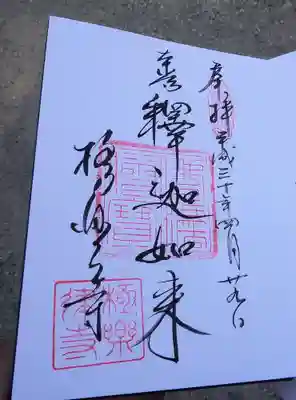 奉拝 平成三十年四月廿九日
釋迦如来
極楽寺
極樂律寺